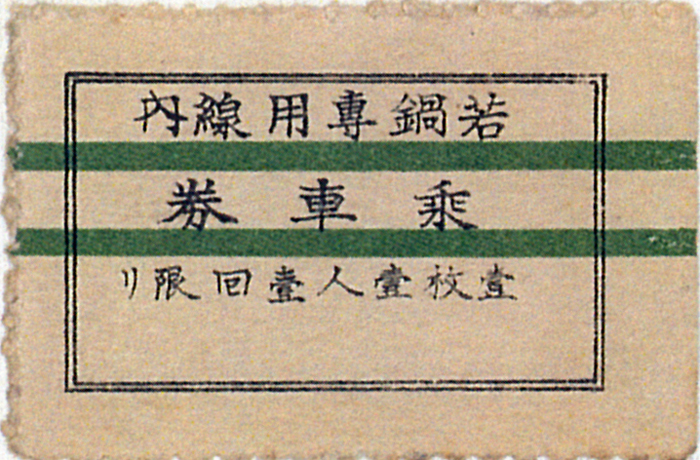 若鍋專用線内
乗車券
壹枚壹人壹回限リ